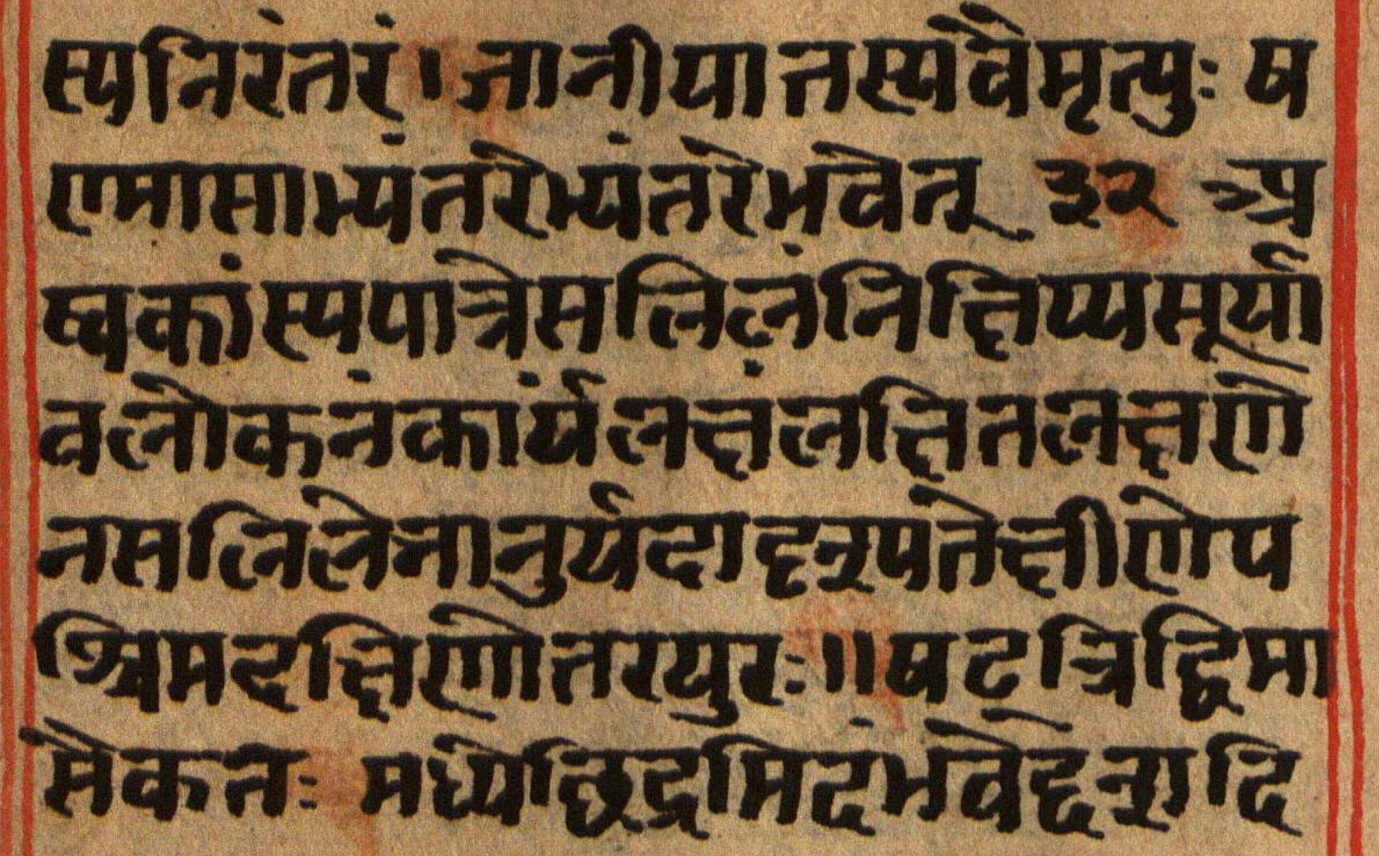 स्यनिरंतरं।जानीयात्तस्यवैमृत्युः ष
ण्मासाभ्यंतरेभ्यंतरेभवेत् ३२
कांस्यपात्रेसलिलंनिक्षिप्यसूर्या
वलोकनंकार्यंलक्षंलक्षितलक्षणे
नसलिलेभानुर्यदादृश्यतेक्षीणोप
श्चिमदक्षिणोत्तरयुरः॥षटत्रिद्विमा
सैकतः मध्येछिद्रमिदंभवेद्दशदि